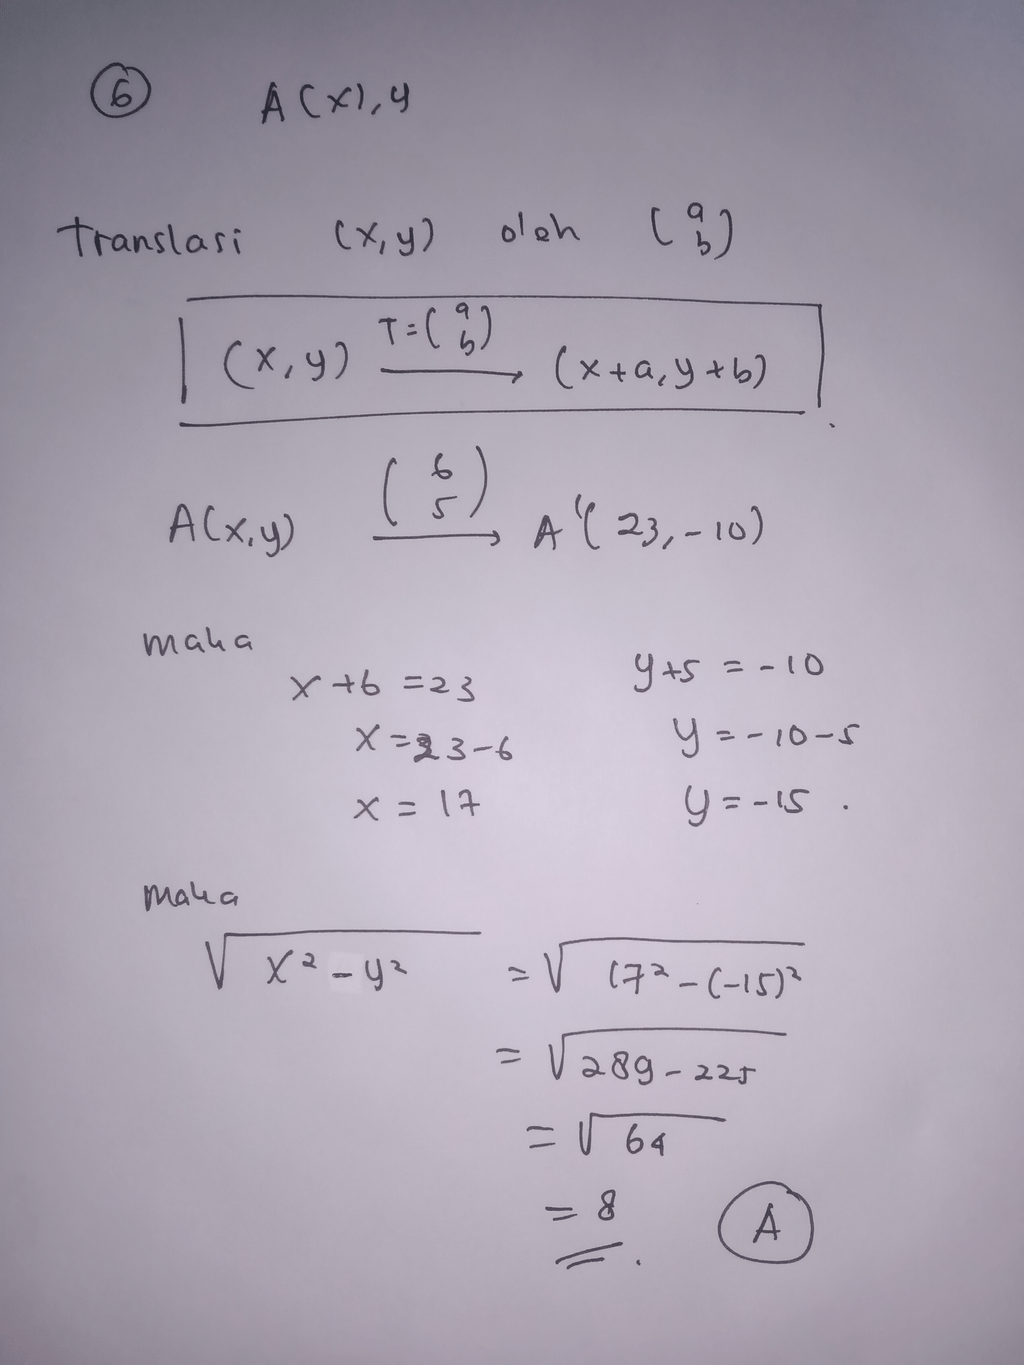 6 A(x),y
Translasi (x,y) oleh (a b)
(x,y) T=(a b) → (x+a, y+b)
A(x,y) (6 5) → A'(23,-10)
maka
x+6 =23 y+5 = -10
x=23-6 y = -10-5
x = 17 y = -15 .
maka
√x²-y² = √17²-(-15)²
= √289-225
= √64
= 8 A